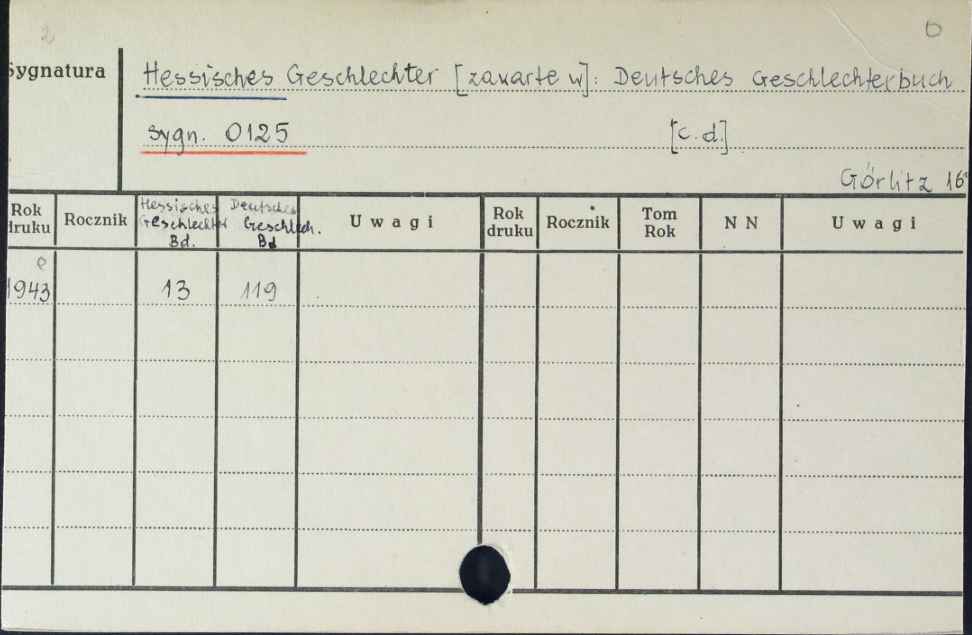 2 0
Sygnatura Hessisches Geschlechter [zawarte w]: Deutsches Geschlechterbuch
sygn. 0125 [c. d.]
Görlitz 16
Rok druku Rocznik Hessisches Geschlechter Bd. Deutsches Geschlech. Bd Uwagi Rok druku Rocznik Tom Rok NN Uwagi
1943 13 119